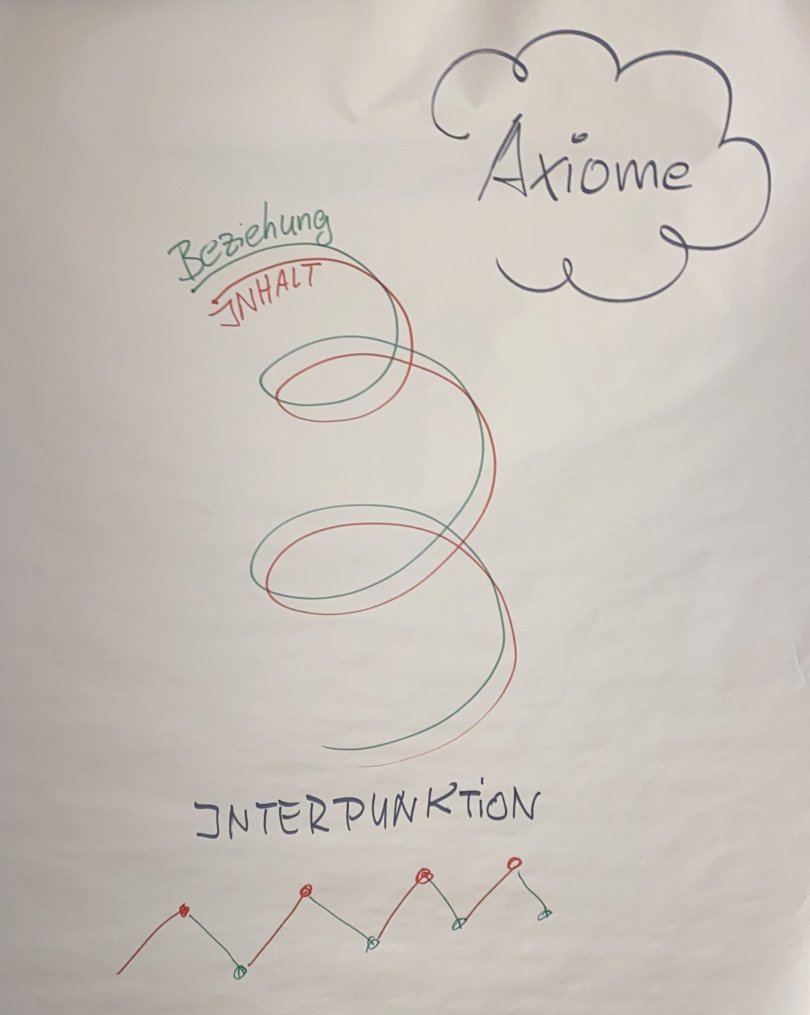 Axiome
Beziehung
INHALT
INTERPUNKTION